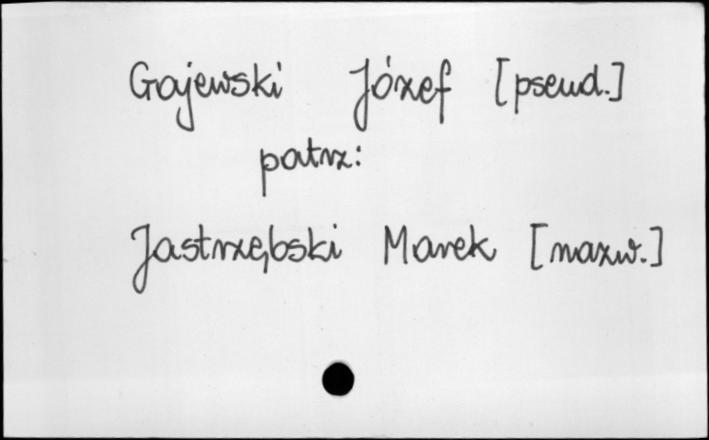 Gajewski Józef [pseud.]
patrz:
Jastrzębski Marek [nazw.]